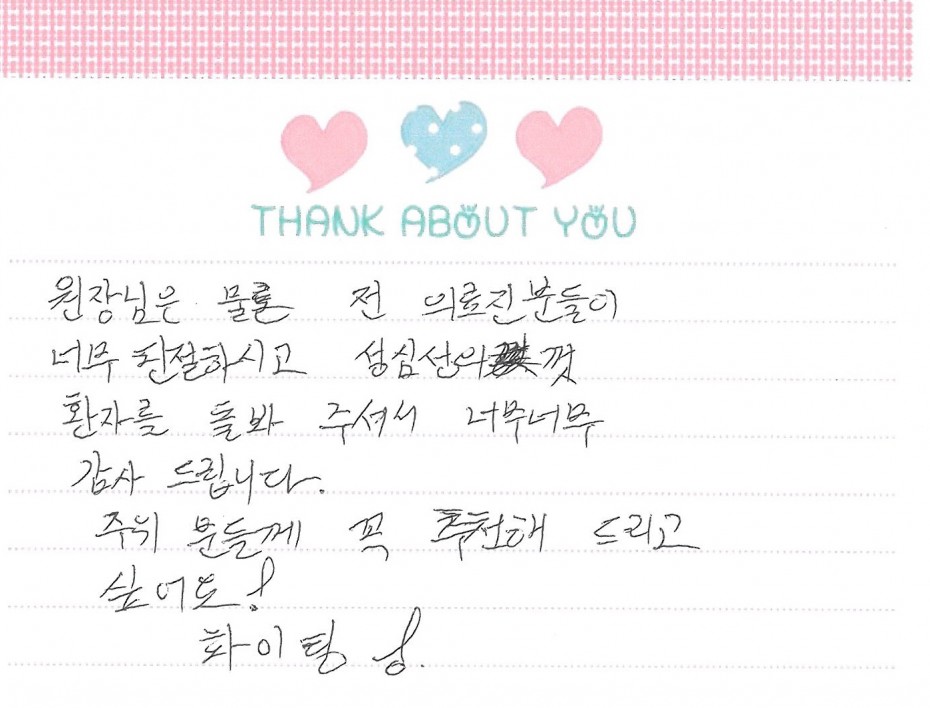 THANK ABOUT YOU
원장님은 물론 전 의료진분들이
너무 친절하시고 성심선의껏
환자를 돌봐 주셔서 너무너무
감사 드립니다.
주위 분들께 꼭 추천해 드리고
싶어요!
화이팅!